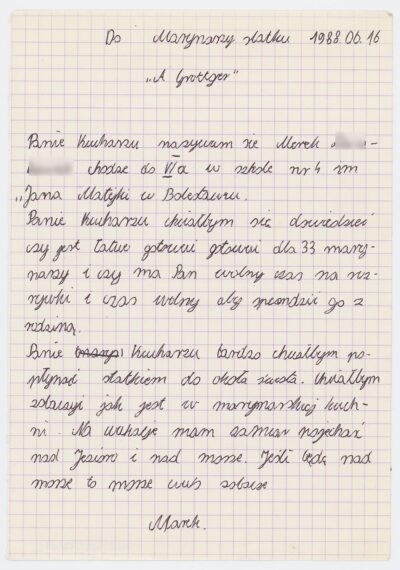 Do Marynarzy statku 1988.06.16
„A Grottger"
Panie Kucharzu nazywam sie Marek
chodze do VIa w szkole nr 4 im
„Jana Matejki w Bolesławcu.
Panie Kucharzu chciałbym się dowiedzieć
czy jest łatwo gotować gotować dla 33 mary-
narzy i czy ma Pan wolny czas na roz-
rywki i czas wolny aby spędzić go z
rodziną.
Panie Kucharzu bardzo chciałbym po-
płynąć statkiem do okoła świata. Chciałbym
zobaczyć jak jest w marynarskiej kuch-
ni. Na wakacje mam zamiar pojechać
nad Jezioro i nad morze. Jeśli będę nad
morze to może was zobacze
Marek.